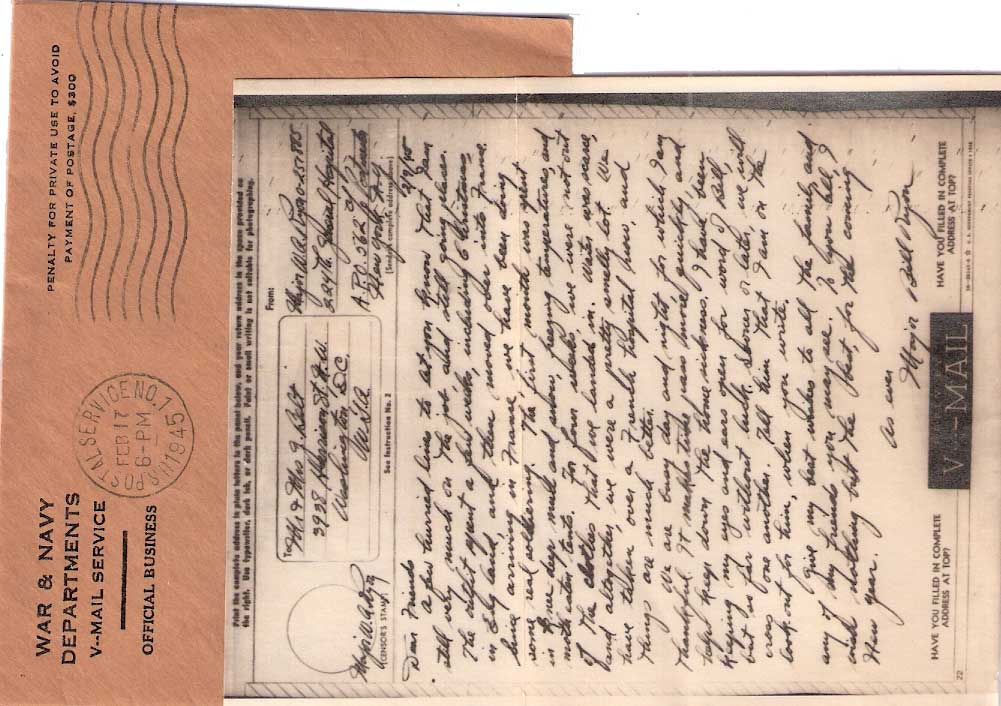 WAR & NAVY
DEPARTMENTS
V-MAIL SERVICE
OFFICIAL BUSINESS
PENALTY FOR PRIVATE USE TO AVOID
PAYMENT OF POSTAGE, $300
U.S. POSTAL SERVICE NO. 1
FEB 17
6-PM
1945
Print the complete address in plain letters in the panel below, and your return address in the space provided on
the right. Use typewriter, dark ink, or dark pencil. Faint or small writing is not suitable for photographing.
To
Mr & Mrs J. Belt
3938 Harrison St. N.W.
Washington D.C.
U.S.A.
From:
Major W.A. Ryan
224th General Hospital
A.P.O. 562 c/o P.M.
New York N.Y.
(Sender's complete address)
2/9/45
(CENSOR'S STAMP)
See Instruction No. 2
Dear Friends
a few hurried lines to let you know that I am
still very much on the job and still going places.
The outfit spent a few weeks, including Christmas
in England and then moved over into France.
Since arriving in France we have been doing
some real soldiering. The first month was spent
in knee deep mud and snow, freezing temperatures, and
in tents. For four weeks we were not out
of the clothes that we landed in. Water was scarce,
and altogether, we were a pretty smelly lot. We
have taken over a French hospital now, and
things are much better.
We are busy day and night for which I am
thankful. It makes time pass more quickly and
helps keep down the home sickness. I have been
keeping my eyes and ears open for word of Bill,
but so far without luck. Sooner or later, we will
cross one another. Tell him that I am on the
look out for him, when you write.
Give my best wishes to all the family, and
any of my friends you may see. To you all, I
wish nothing but the best, for the coming
New year.
As ever
Major Bill Ryan
HAVE YOU FILLED IN COMPLETE
ADDRESS AT TOP?
V···—MAIL
HAVE YOU FILLED IN COMPLETE
ADDRESS AT TOP?
22